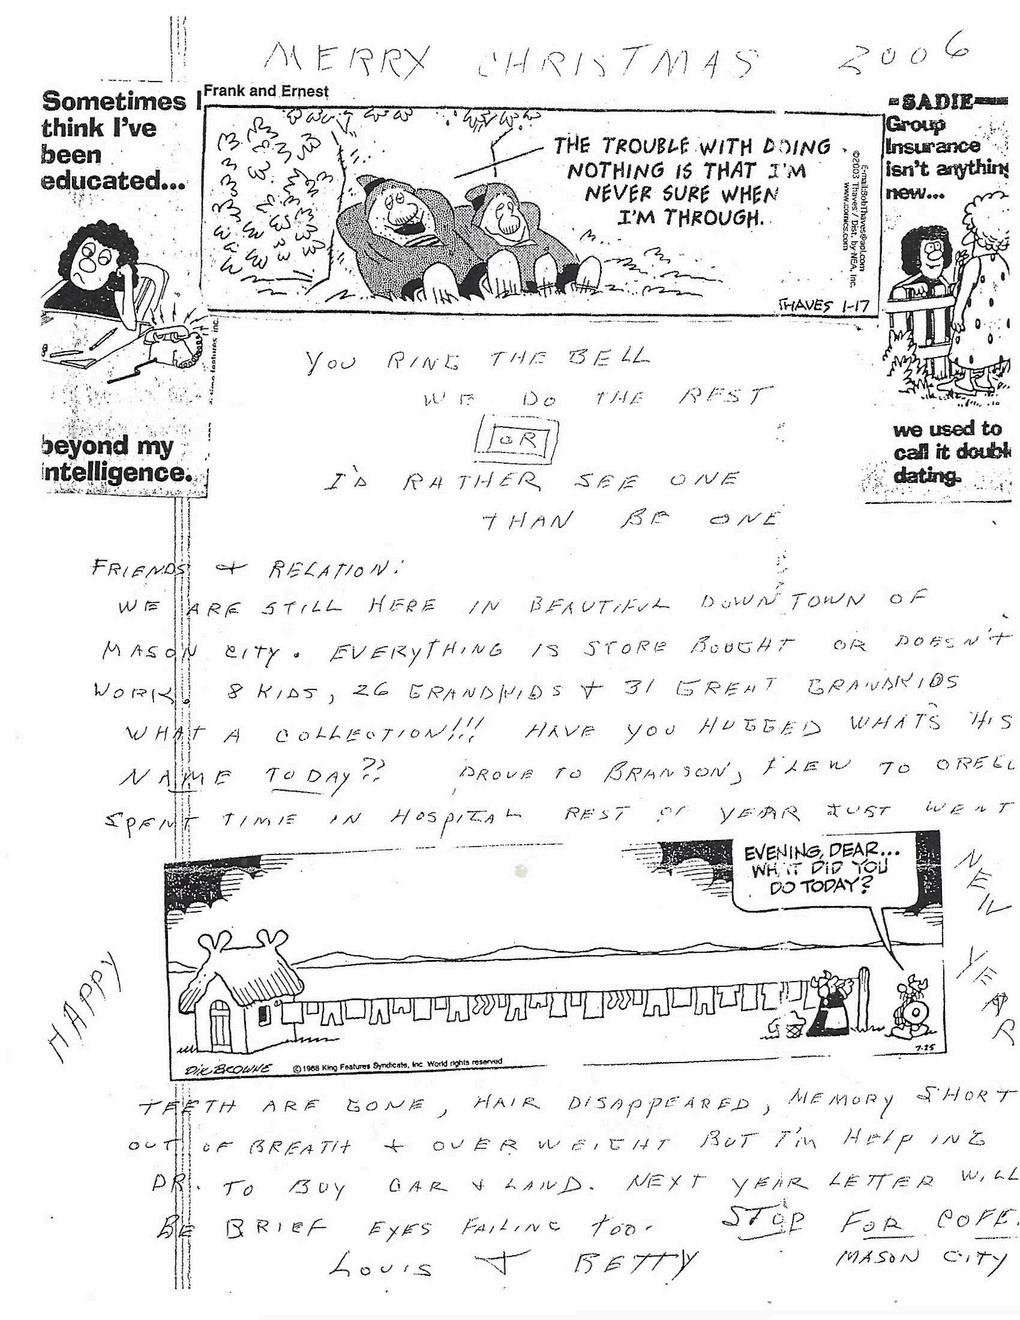 MERRY CHRISTMAS 2006
Sometimes I
think I've
been
educated...
beyond my
intelligence.
Frank and Ernest
THE TROUBLE WITH DOING
NOTHING IS THAT I'M
NEVER SURE WHEN
I'M THROUGH.
©2003 Thaves / Dist. by NEA, Inc.
www.comics.com
THAVES 1-17
SADIE
Group
Insurance
isn't anything
new...
we used to
call it doubl
dating.
YOU RING THE BELL
WE DO THE REST
OR
I'D RATHER SEE ONE
THAN BE ONE
FRIENDS + RELATION:
WE ARE STILL HERE IN BEAUTIFUL DOWNTOWN OF
MASON CITY. EVERYTHING IS STORE BOUGHT OR DOESN'T
WORK. 8 KIDS, 26 GRANDKIDS + 31 GREAT GRANDKIDS
WHAT A COLLECTION!!! HAVE YOU HUGGED WHATS HIS
NAME TODAY?? DROVE TO BRANSON, FLEW TO OREG
SPENT TIME IN HOSPITAL REST OF YEAR JUST WENT
HAPPY
EVENING, DEAR...
WHAT DID YOU
DO TODAY?
DIK BROWNE
©1988 King Features Syndicate, Inc World rights reserved
7-25
NEW YEAR
TEETH ARE GONE, HAIR DISAPPEARED, MEMORY SHORT
OUT OF BREATH + OVER WEIGHT BUT I'M HELPING
DR. TO BUY CAR + LAND. NEXT YEAR LETTER WILL
BE BRIEF EYES FAILING TOO. STOP FOR COFE
LOUIS + BETTY MASON CITY